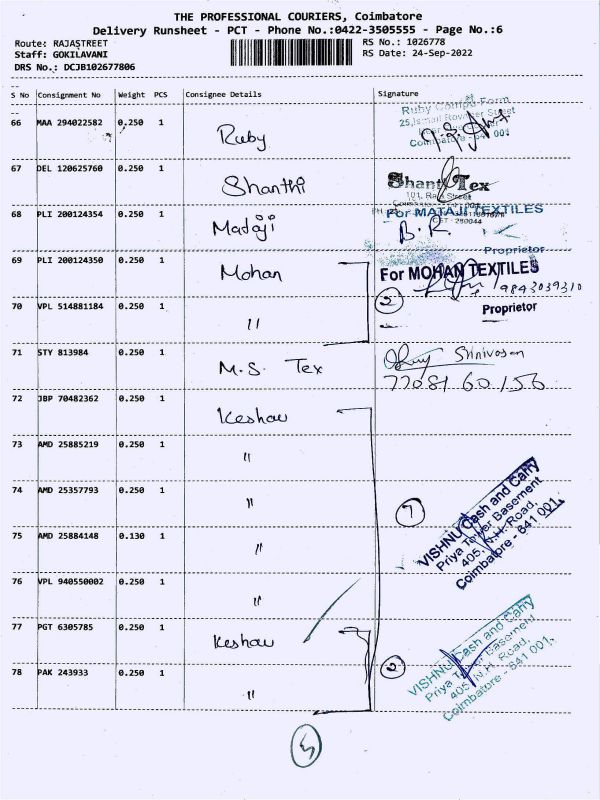 THE PROFESSIONAL COURIERS, Coimbatore
Delivery Runsheet - PCT - Phone No.:0422-3505555 - Page No.:6
Route: RAJASTREET RS No.: 1026778
Staff: GOKILAVANI RS Date: 24-Sep-2022
DRS No.: DCJB102677806
S No Consignment No Weight PCS Consignee Details Signature
66 MAA 294022582 0.250 1 Ruby
Ruby Compu Form
25, Ismail Rowther Street
Coimbatore - 641 001
67 DEL 120625760 0.250 1 Shanthi
Shanthi Tex
101, Raja Street
68 PLI 200124354 0.250 1 Mataji
For MATAJI TEXTILES
B. R.
Proprietor
69 PLI 200124350 0.250 1 Mohan
For MOHAN TEXTILES
2 9843039310
Proprietor
70 VPL 514881184 0.250 1 "
71 STY 813984 0.250 1 M.S. Tex
Srinivasan
77081 60156
72 JBP 70482362 0.250 1 Keshav
73 AMD 25885219 0.250 1 "
74 AMD 25357793 0.250 1 "
7
VISHNU Cash and Carry
Priya Tower Basement
405, N.H. Road,
Coimbatore - 641 001.
75 AMD 25884148 0.130 1 "
76 VPL 940550002 0.250 1 "
77 PGT 6305785 0.250 1 Keshav
VISHNU Cash and Carry
Priya Tower Basement
405, N.H. Road,
Coimbatore - 641 001.
78 PAK 243933 0.250 1 "